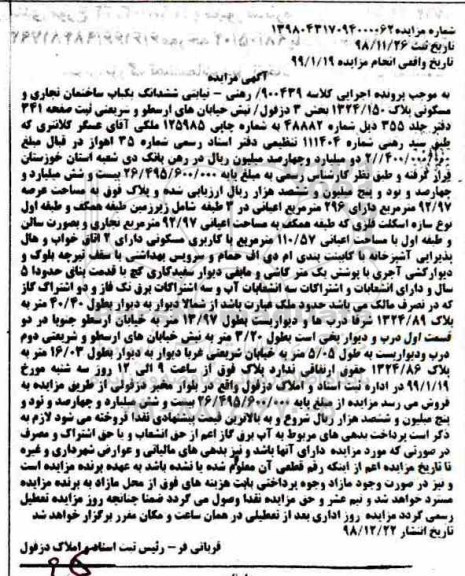 شماره مزایده ۱۳۹۸۰۴۳۱۷۰۹۴۰۰۰۰۶۲
تاریخ ثبت ۹۸/۱۱/۲۶
تاریخ واقعی انجام مزایده ۹۹/۱/۱۹
آگهی مزایده
به موجب پرونده اجرایی کلاسه ۹۰۰۴۳۹/ رهنی – نیابتی ششدانگ یکباب ساختمان تجاری و
مسکونی پلاک ۱۳۲۴/۱۵۰ بخش ۳ دزفول/ نبش خیابان های ارسطو و شریعتی ثبت صفحه ۳۴۱
دفتر جلد ۳۵۵ ذیل شماره ۴۸۸۸۲ به شماره چاپی ۱۲۵۹۸۵ ملکی آقای عسگر کلانتری که
طبق سند رهنی شماره ۱۱۱۴۰۴ تنظیمی دفتر اسناد رسمی شماره ۳۵ اهواز در قبال مبلغ
۲/۴۰۰/۰۰۰/۰۰۰ دو میلیارد و چهارصد میلیون ریال در رهن بانک دی شعبه استان خوزستان
قرار گرفته و طبق نظر کارشناس رسمی به مبلغ پایه ۲۶/۴۹۵/۶۰۰/۰۰۰ بیست و شش میلیارد و
چهارصد و نود و پنج میلیون و ششصد هزار ریال ارزیابی شده و پلاک فوق با مساحت عرصه
۹۲/۹۷ مترمربع دارای ۲۹۶ مترمربع اعیانی در ۳ طبقه شامل زیرزمین طبقه همکف و طبقه اول
نوع سازه اسکلت فلزی که طبقه همکف به مساحت اعیانی ۹۲/۹۷ مترمربع تجاری و بصورت سالن
و طبقه اول با مساحت اعیانی ۱۱۰/۵۷ مترمربع با کاربری مسکونی دارای ۲ اتاق خواب و هال
پذیرایی آشپزخانه با کابینت بندی ام دی اف حمام و سرویس بهداشتی با سقف تیرچه بلوک و
دیوارکشی آجری با پوشش یک متر کاشی و مابقی دیوار سفیدکاری گچ با قدمت بنای حدودا ۵
سال و دارای انشعابات و اشتراکات سه انشعابات آب و سه اشتراکات برق تک فاز و دو اشتراک گاز
که در تصرف مالک می باشد حدود ملک عبارت باشد از شمالا دیوار به دیوار بطول ۴۰/۴۰ متر به
پلاک ۱۳۲۴/۸۹ شرقا درب ها و دیواریست بطول ۱۳/۹۷ متر به خیابان ارسطو جنوبا در دو
قسمت اول درب و دیوار پخی است بطول ۳/۲۰ متر به نبش خیابان های ارسطو و شریعتی دوم
درب و دیواریست به طول ۵/۰۵ متر به خیابان شریعتی غربا دیوار به دیوار بطول ۱۶/۰۳ متر به
پلاک ۱۳۲۴/۸۶ حقوق ارتفاقی ندارد پلاک فوق از ساعت ۹ الی ۱۲ روز سه شنبه مورخ
۹۹/۱/۱۹ در اداره ثبت اسناد و املاک دزفول واقع در بلوار مخبر دزفولی از طریق مزایده به
فروش می رسد مزایده از مبلغ پایه ۲۶/۴۹۵/۶۰۰/۰۰۰ بیست و شش میلیارد و چهارصد و نود و
پنج میلیون و ششصد هزار ریال شروع و به بالاترین قیمت پیشنهادی نقدا فروخته می شود لازم به
ذکر است پرداخت بدهی های مربوط به آب برق گاز اعم از حق انشعاب و یا حق اشتراک و مصرف
در صورتی که مورد مزایده دارای آنها باشد و نیز بدهی های مالیاتی و عوارض شهرداری و غیره
تا تاریخ مزایده اعم از اینکه رقم قطعی آن معلوم شده یا نشده باشد به عهده برنده مزایده است
و نیز در صورت وجود مازاد وجوه پرداختی بابت هزینه های فوق از محل مازاد به برنده مزایده
مسترد خواهد شد و نیم عشر و حق مزایده نقدا وصول می گردد ضمنا چنانچه روز مزایده تعطیل
رسمی گردد مزایده روز اداری بعد از تعطیلی در همان ساعت و مکان مقرر برگزار خواهد شد
تاریخ انتشار ۹۸/۱۲/۲۲
قربانی فر – رئیس ثبت اسناد و املاک دزفول